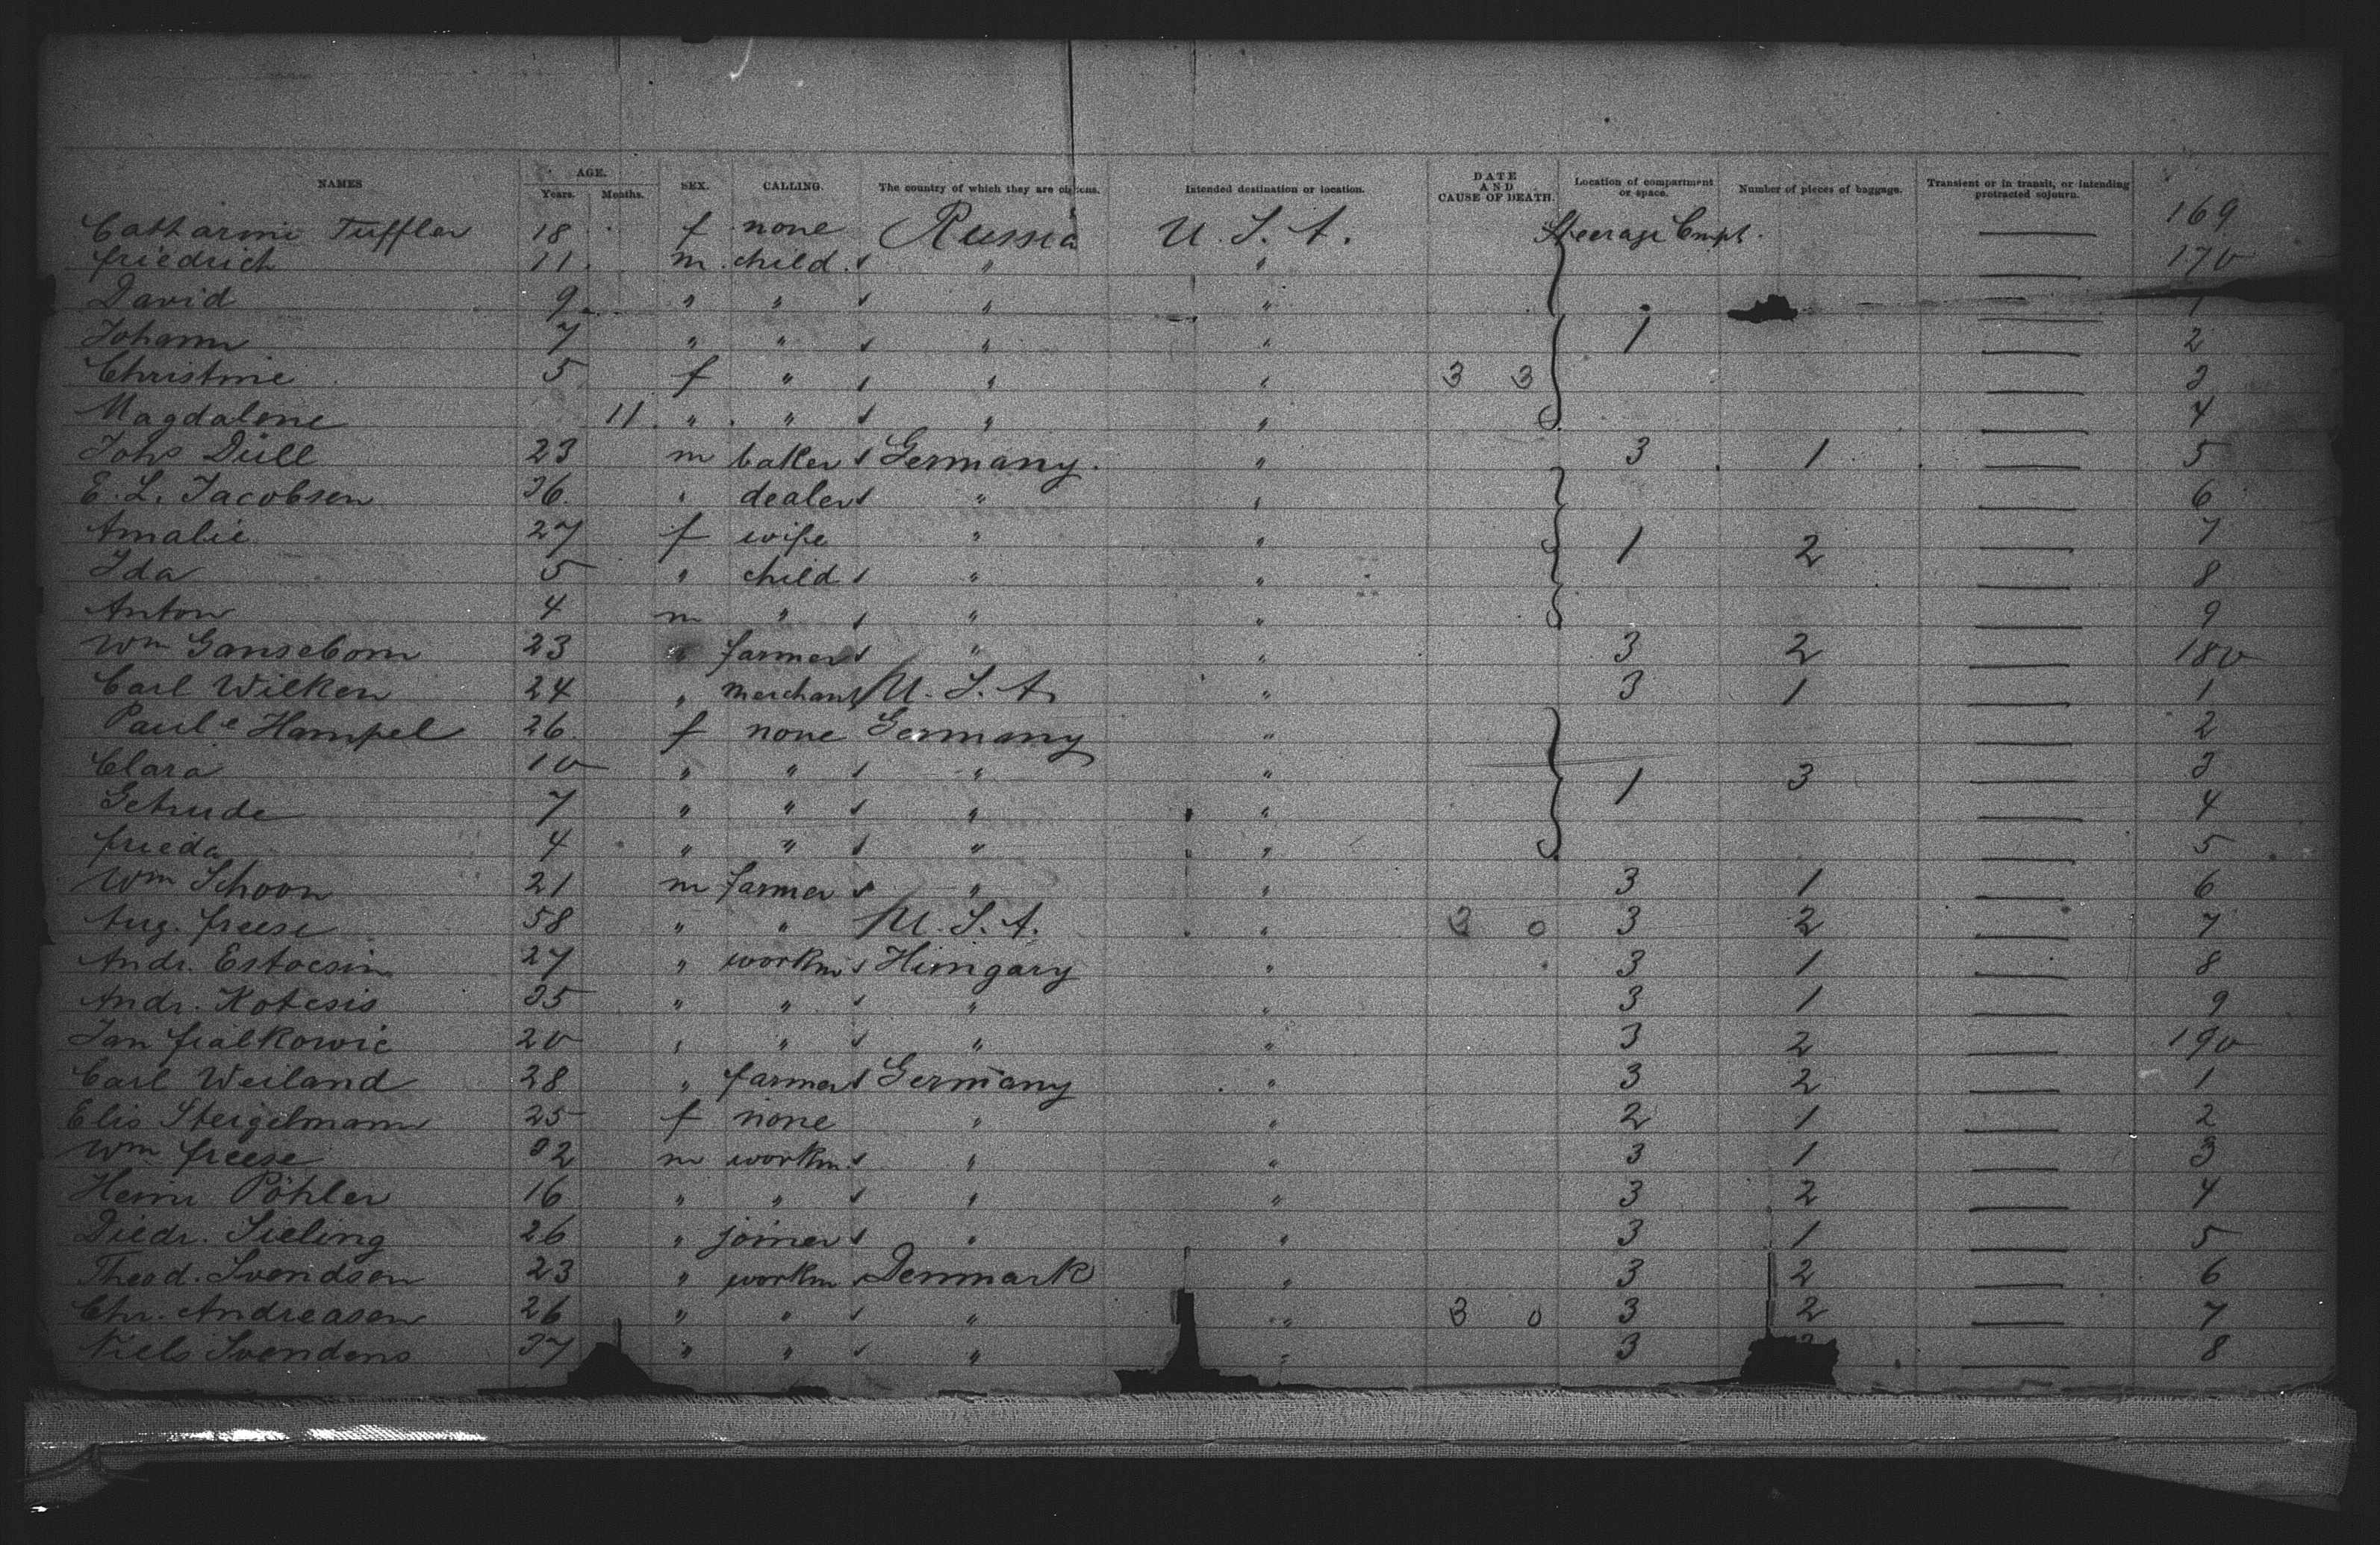 NAMES AGE. Years. Months. SEX. CALLING. The country of which they are citizens. Intended destination or location. DATE AND CAUSE OF DEATH. Location of compartment or space. Number of pieces of baggage. Transient or in transit, or intending protracted sojourn.
Catharine Tuffler 18 f none Russia U. S. A. Steerage Cmpt. — 169
Friedrich 11 m child s " " — 170
David 9 " " s " " — 1
Johann 7 " " s " " 1 — 2
Christine 5 f " s " " 3 3 — 3
Magdalene 11 " " s " " — 4
Johs Düll 23 m baker s Germany " 3 1 — 5
E. L. Jacobsen 36 " dealer s " " — 6
Amalie 27 f wife " " 1 2 — 7
Ida 5 " child s " " — 8
Anton 4 m " s " " — 9
Wm Gansebom 23 " farmer s " " 3 2 — 180
Carl Wilken 24 " merchant s U. S. A " 3 1 — 1
Paule Hampel 26 f none Germany " — 2
Clara 10 " " s " " 1 3 — 3
Getrude 7 " " s " " — 4
Frieda 4 " " s " " — 5
Wm Schoon 21 m farmer s " " 3 1 — 6
Aug. Freese 58 " " U. S. A. " 3 0 3 2 — 7
Andr. Estocsin 27 " workm s Hungary " 3 1 — 8
Andr. Kotesis 35 " " s " " 3 1 — 9
Jan Fialkowic 20 " " s " " 3 2 — 190
Carl Weiland 28 " farmer s Germany " 3 2 — 1
Elis Steigelmann 25 f none " " 2 1 — 2
Wm Freese 32 m workm s " " 3 1 — 3
Heinr Pöhler 16 " " s " " 3 2 — 4
Diedr. Sieling 26 " joiner s " " 3 1 — 5
Theod. Svendsen 23 " workm s Denmark " 3 2 — 6
Chr. Andreasen 26 " " s " " 3 0 3 2 — 7
Niels Svendens 37 " " s " " 3 — 8